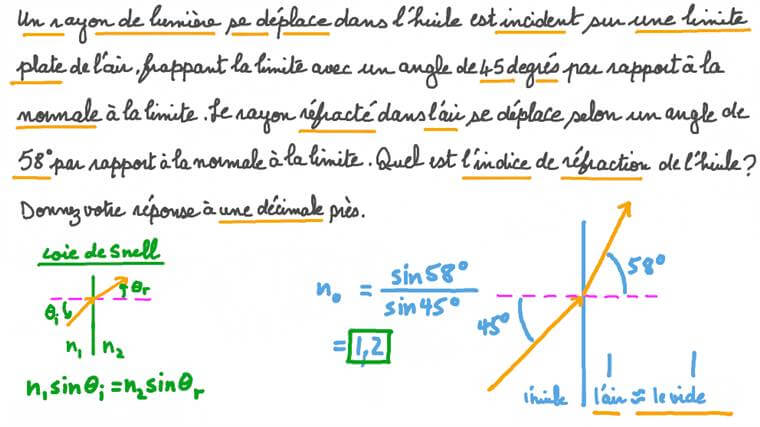 Un rayon de lumière se déplace dans l'huile est incident sur une limite
plate de l'air, frappant la limite avec un angle de 45 degrés par rapport à la
normale à la limite. Le rayon réfracté dans l'air se déplace selon un angle de
58° par rapport à la normale à la limite. Quel est l'indice de réfraction de l'huile?
Donnez votre réponse à une décimale près.
Loie de Snell
θr
θi
n₁ n₂
n₁ sinθi = n₂ sinθr
n₀ = sin 58° / sin 45°
= 1,2
58°
45°
l'huile l'air ≈ le vide